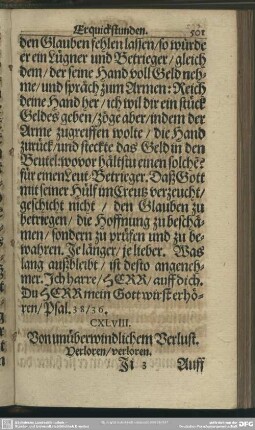 Erquickstunden. 501
den Glauben fehlen lassen/ so würde
er ein Lügner und Betrieger/ gleich
dem/ der seine Hand voll Geld neh-
me/ und spräch zum Armen: Reich
deine Hand her/ ich wil dir ein stück
Geldes geben/ zöge aber/ indem der
Arme zugreiffen wolte/ die Hand
zurück/ und steckte das Geld in den
Beutel: wovor hältstu einen solche?
für einen Leut-Betrieger. Daß Gott
mit seiner Hülf im Creutz verzeucht/
geschicht nicht/ den Glauben zu
betriegen/ die Hoffnung zu beschä-
men/ sondern zu prüfen und zu be-
wahren. Je länger/ je lieber. Was
lang außbleibt/ ist desto angeneh-
mer. Ich harre/ HERR/ auff dich.
Du HERR mein Gott wirst erhö-
ren/ Psal. 38/16.
CXLVIII.
Von unüberwindlichem Verlust.
Verloren/ verloren.
Ji 3 Auff